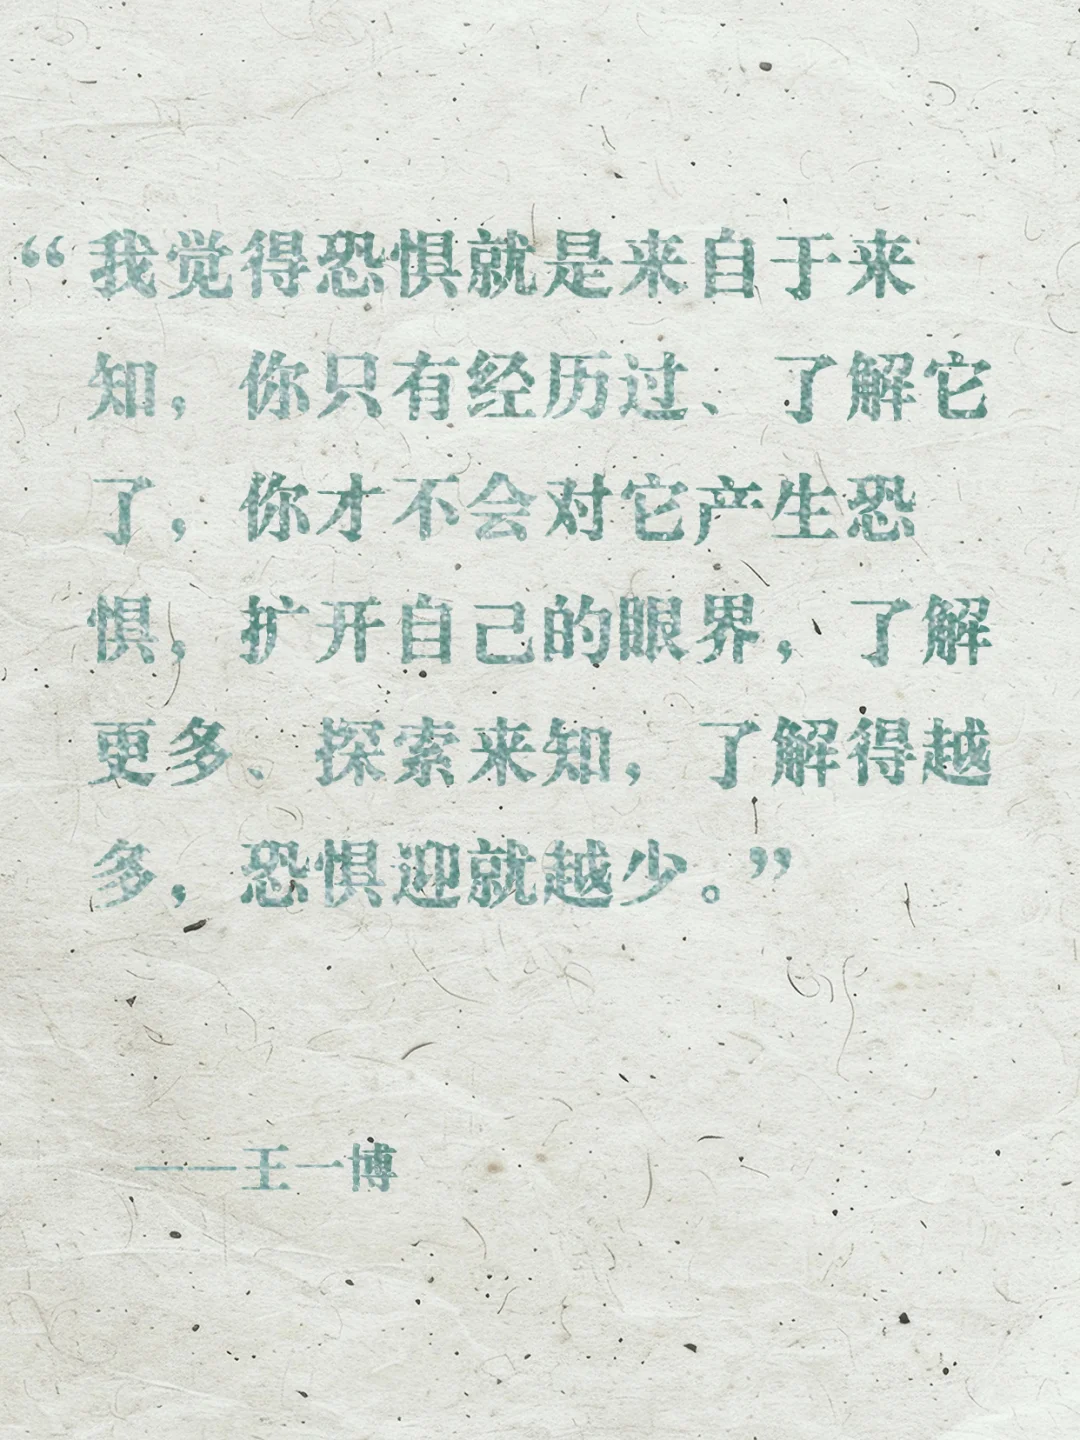 “我觉得恐惧就是来自于来
知，你只有经历过、了解它
了，你才不会对它产生恐
惧，扩开自己的眼界，了解
更多、探索来知，了解得越
多，恐惧迎就越少。”
——王一博